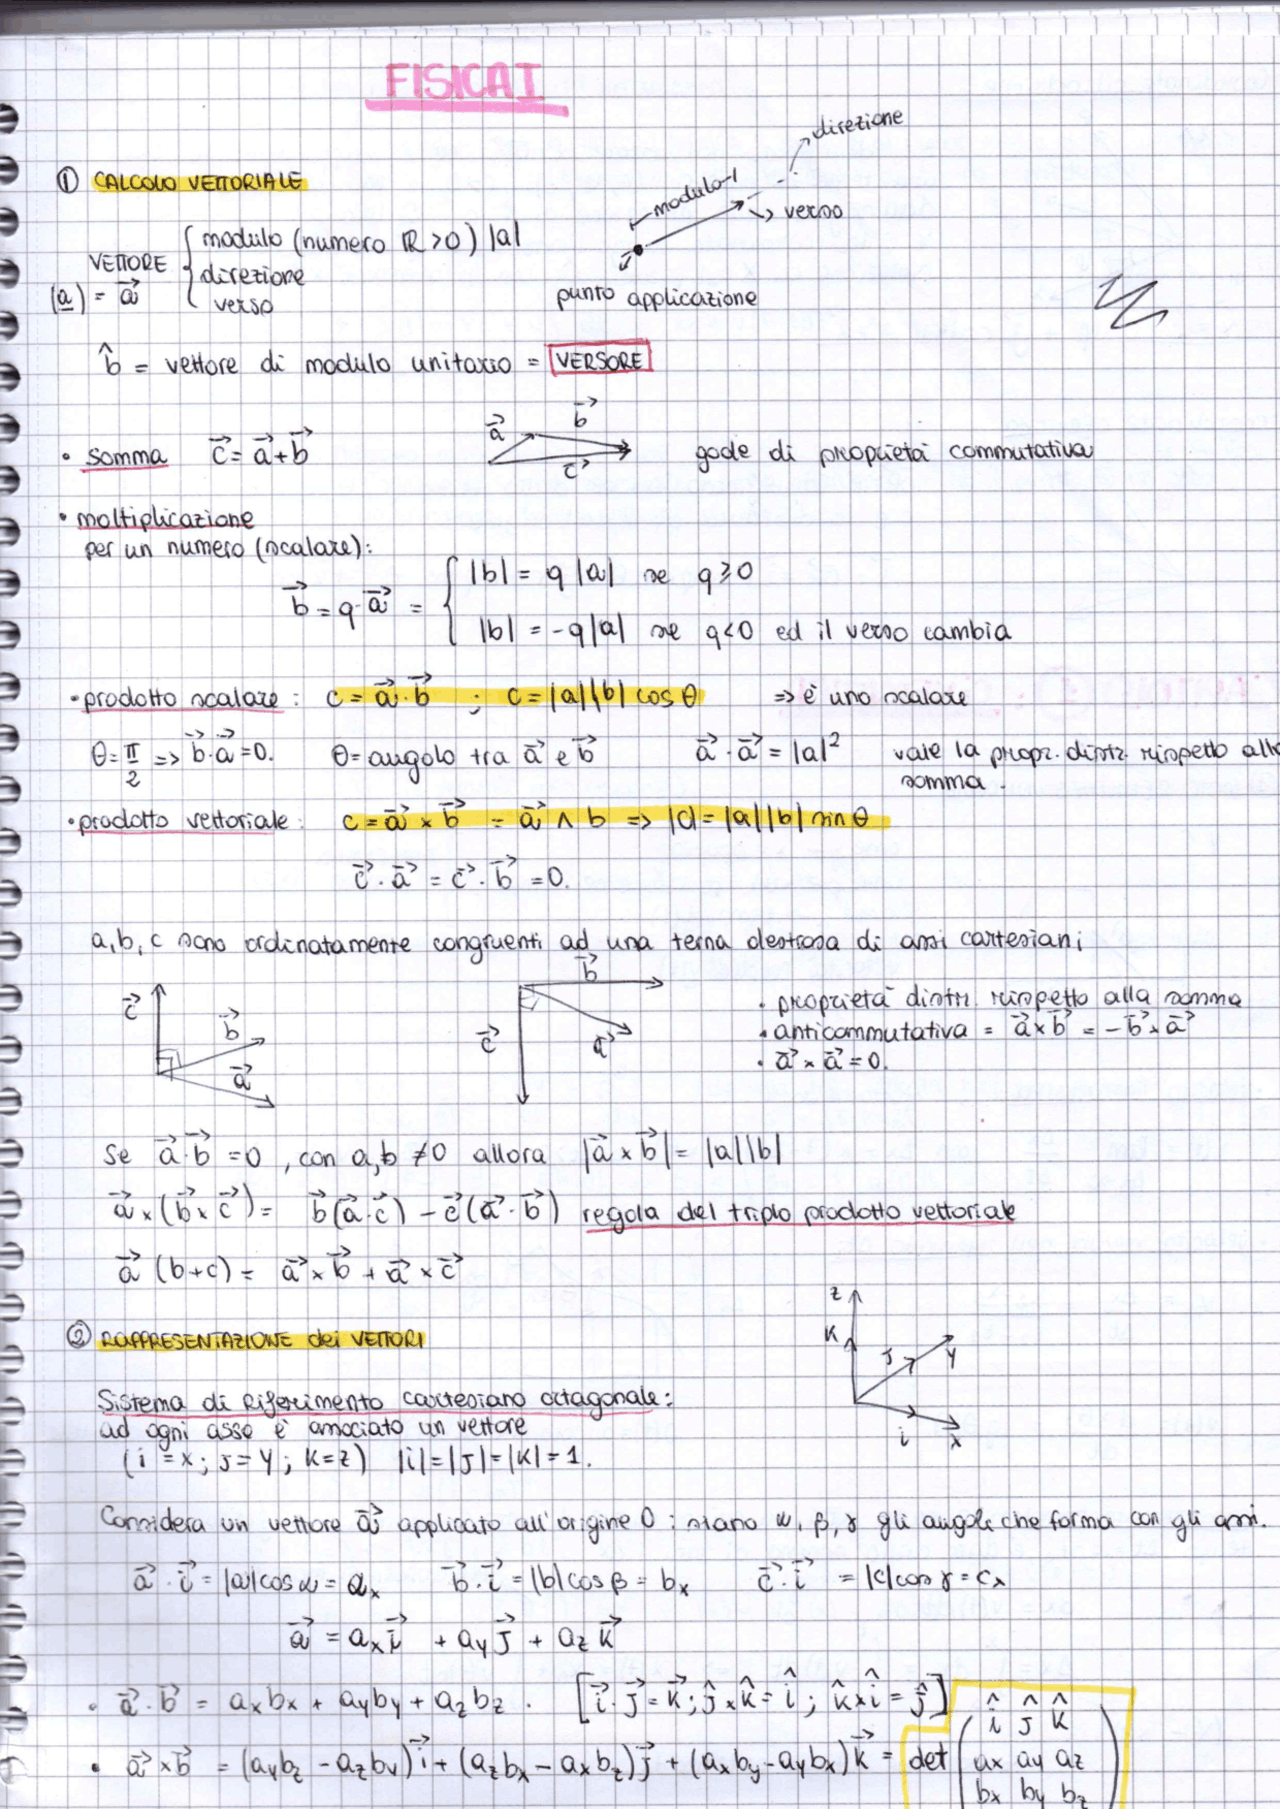 FISICA I
① CALCOLO VETTORIALE
direzione
modulo
verso
punto applicazione
VETTORE
(a) = a⃗
{ modulo (numero ℝ >0) |a|
direzione
verso
b̂ = vettore di modulo unitario = VERSORE
• somma c⃗ = a⃗ + b⃗
a⃗ b⃗ c⃗
gode di proprietà commutativa
• moltiplicazione
per un numero (scalare):
b⃗ = q·a⃗ = { |b| = q |a| se q ≥ 0
|b| = -q|a| se q<0 ed il verso cambia
• prodotto scalare : c = a⃗·b⃗ ; c = |a||b| cos θ => è uno scalare
θ = π/2 => b⃗·a⃗ = 0. θ = angolo tra a⃗ e b⃗ a⃗·a⃗ = |a|² vale la propr. distr. rispetto alla
somma.
• prodotto vettoriale: c = a⃗ × b⃗ = a⃗ ∧ b => |c| = |a||b| sin θ
c⃗·a⃗ = c⃗·b⃗ = 0.
a, b, c sono ordinatamente congruenti ad una terna destrosa di assi cartesiani
c⃗ b⃗ a⃗
b⃗ c⃗ a⃗
• proprietà distr. rispetto alla somma
• anticommutativa = a⃗ × b⃗ = -b⃗ × a⃗
• a⃗ × a⃗ = 0.
Se a⃗·b⃗ = 0, con a,b ≠ 0 allora |a⃗ × b⃗| = |a||b|
a⃗ × (b⃗ × c⃗) = b⃗(a⃗·c⃗) - c⃗(a⃗·b⃗) regola del triplo prodotto vettoriale
a⃗ (b+c) = a⃗ × b⃗ + a⃗ × c⃗
② RAPPRESENTAZIONE dei VETTORI
z K J Y i x
Sistema di riferimento cartesiano octagonale:
ad ogni asse è associato un vettore
(i = x; J = Y; K = z) |i| = |J| = |K| = 1.
Considera un vettore a⃗ applicato all'origine O ; siano α, β, γ gli angoli che forma con gli assi.
a⃗·i⃗ = |a|cos α = a_x b⃗·i⃗ = |b|cos β = b_x c⃗·i⃗ = |c|cos γ = c_x
a⃗ = a_x i⃗ + a_y J⃗ + a_z K⃗
• a⃗·b⃗ = a_x b_x + a_y b_y + a_z b_z. [i⃗·J⃗ = K⃗; Ĵ × K̂ = î; K̂ × î = Ĵ]
• a⃗ × b⃗ = (a_y b_z - a_z b_y) i⃗ + (a_z b_x - a_x b_z) J⃗ + (a_x b_y - a_y b_x) K⃗ = det ( î Ĵ K̂
ax ay az
bx by bz )